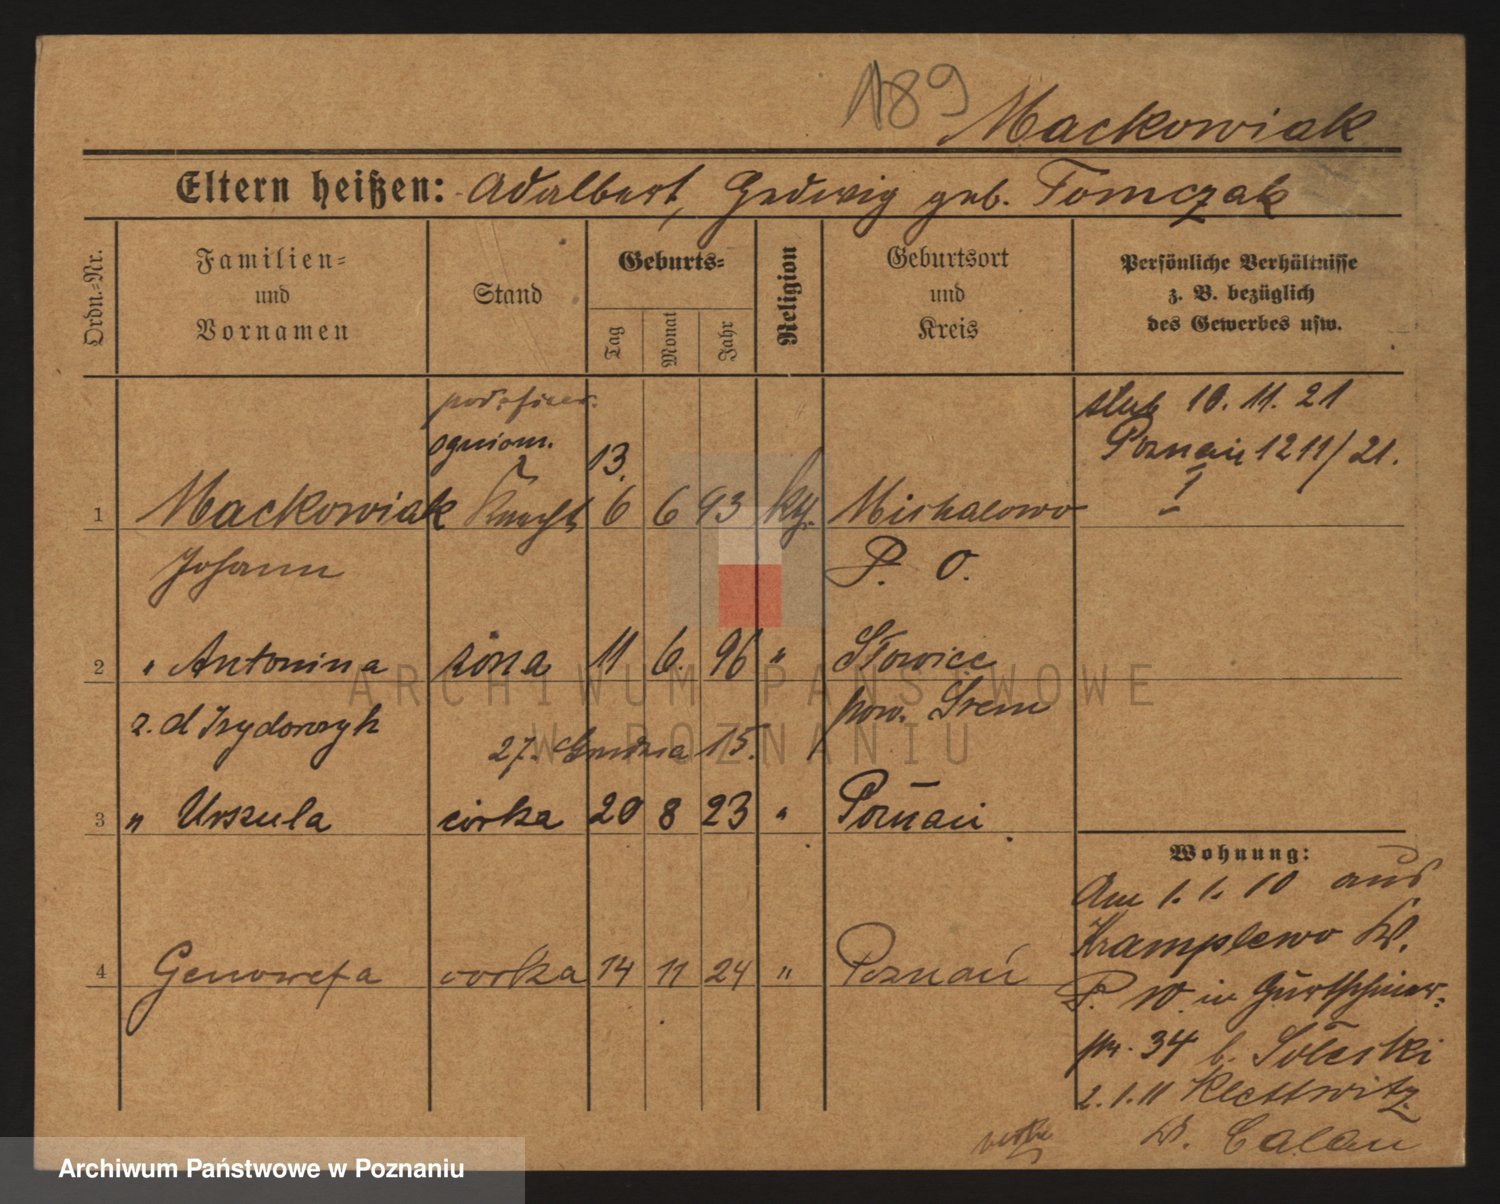 189
Mackowiak
Eltern heißen: Adalbert, Hedwig geb. Tomczak
Ordn.-Nr.
Familien-
und
Vornamen
Stand
Geburts-
Tag
Monat
Jahr
Religion
Geburtsort
und
Kreis
Persönliche Verhältnisse
z. B. bezüglich
des Gewerbes usw.
podoficer.
ogniom.
13.
ślub 10. 11. 21
Poznań 1211/21.
1 Mackowiak Knecht 6 6 93 kth. Michalowo
Johann P. O.
2 " Antonina żona 11 6. 96 " Słowiec
z. d Izydorczyk pow. Śrem
27. Grudnia 15.
3 " Urszula córka 20 8 23 " Poznań
4 Genowefa córka 14 11 24 " Poznań
Wohnung:
Am 1. 1. 10 aus
Kramplewo Kr.
P. W. in Gurtschiner-
str. 34 b.
2. 1. 11 Klettwitz
Kr. Calau
ARCHIWUM PAŃSTWOWE
W POZNANIU
Archiwum Państwowe w Poznaniu